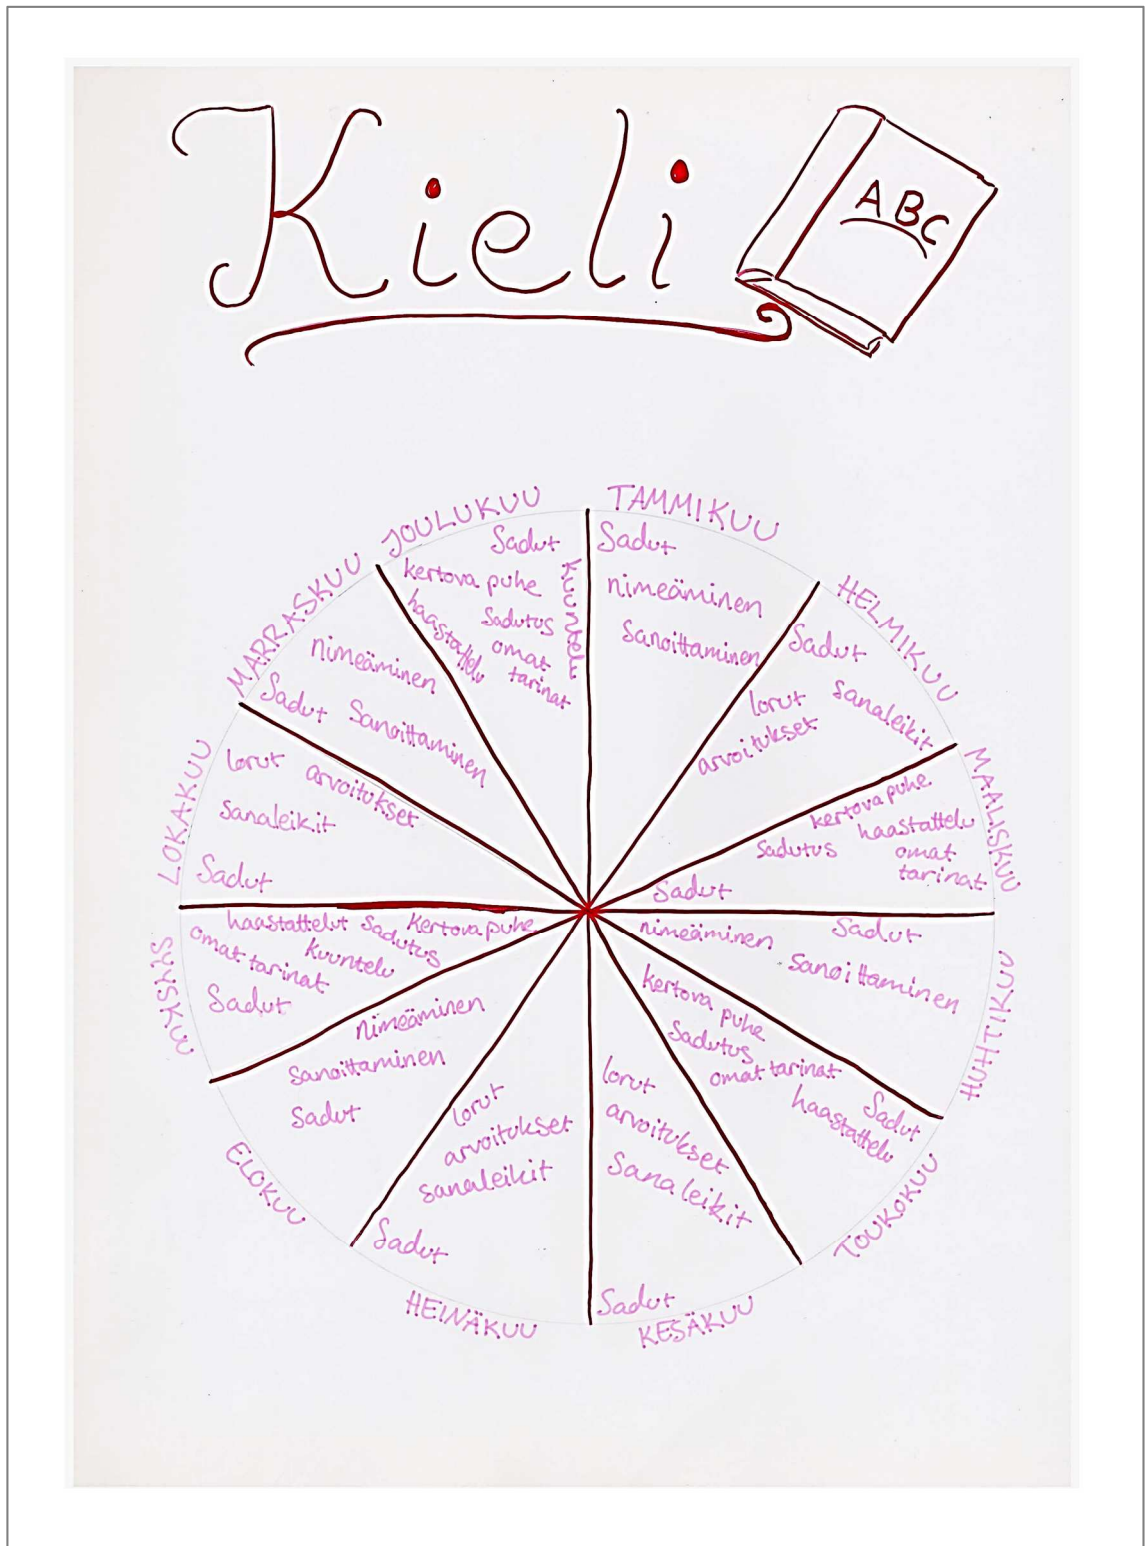 Kieli
ABC
TAMMIKUU
Sadut
nimeäminen
sanoittaminen
HELMIKUU
Sadut
lorut
sanaleikit
arvoitukset
MAALISKUU
kertova puhe
haastattelu
sadutus
omat
tarinat
Sadut
HUHTIKUU
nimeäminen
Sadut
sanoittaminen
TOUKOKUU
kertova
puhe
Sadutus
omat tarinat
Sadut
haastattelu
KESÄKUU
lorut
arvoitukset
Sanaleikit
Sadut
HEINÄKUU
lorut
arvoitukset
sanaleikit
Sadut
ELOKUU
nimeäminen
sanoittaminen
Sadut
SYYSKUU
haastattelut
Sadutus
Kertova puhe
omat tarinat
kuuntelu
Sadut
LOKAKUU
lorut
arvoitukset
sanaleikit
Sadut
MARRASKUU
nimeäminen
Sadut
Sanoittaminen
JOULUKUU
Sadut
kertova puhe
kuuntelu
haastattelu
Sadutus
omat
tarinat